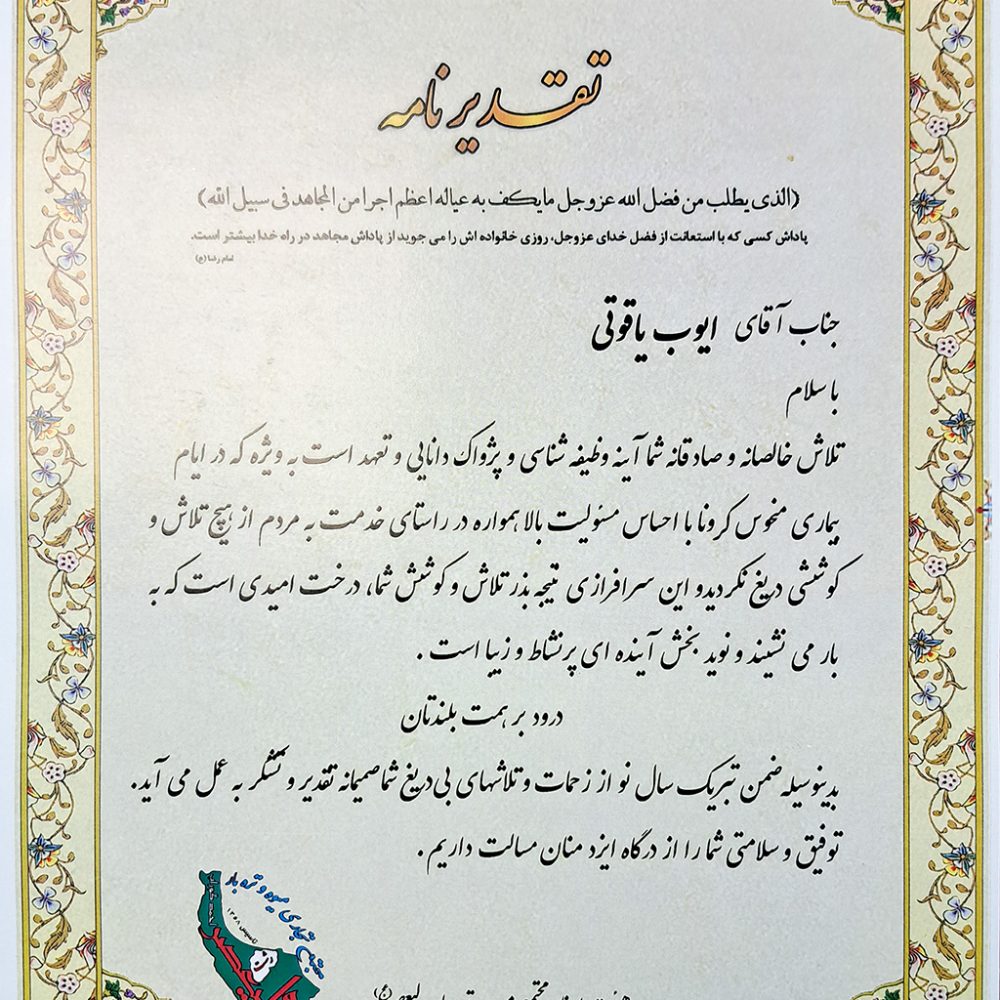 تقدیرنامه
(الذی یطلب من فضل الله عزوجل ما یکف به عیاله اعظم اجرا من المجاهد فی سبیل الله)
پاداش کسی که با استعانت از فضل خدای عزوجل، روزی خانواده اش را می جوید از پاداش مجاهد در راه خدا بیشتر است.
امام رضا (ع)
جناب آقای ایوب یاقوتی
با سلام
تلاش خالصانه و صادقانه شما آینه وظیفه شناسی و پژواک دانایی و تعهد است به ویژه که در ایام
بیماری منحوس کرونا با احساس مسئولیت بالا همواره در راستای خدمت به مردم از هیچ تلاش و
کوششی دریغ نکردید و این سرافرازی نتیجه بذر تلاش و کوشش شما، درخت امیدی است که به
بار می نشیند و نوید بخش آینده ای پرنشاط و زیبا است .
درود بر همت بلندتان
بدینوسیله ضمن تبریک سال نو از زحمات و تلاشهای بی دریغ شما صمیمانه تقدیر و تشکر به عمل می آید.
توفیق و سلامتی شما را از درگاه ایزد منان مسالت داریم .
مجتمع تجاری میوه و تره بار
تاسیس ۱۳۶۸